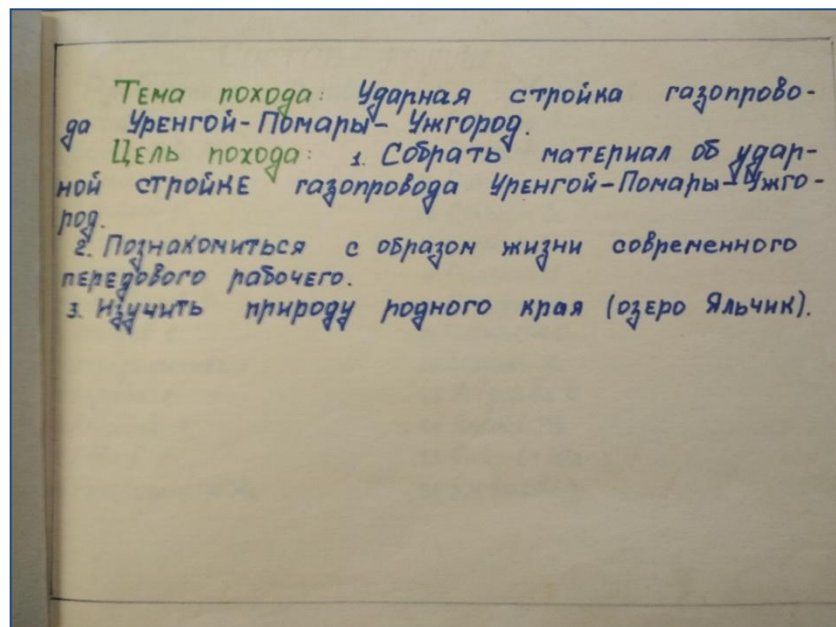 Тема похода: Ударная стройка газопрово-
да Уренгой-Помары-Ужгород.
Цель похода: 1. Собрать материал об удар-
ной стройке газопровода Уренгой-Помары-Ужго-
род.
2. Познакомиться с образом жизни современного
передового рабочего.
3. Изучить природу родного края (озеро Яльчик).